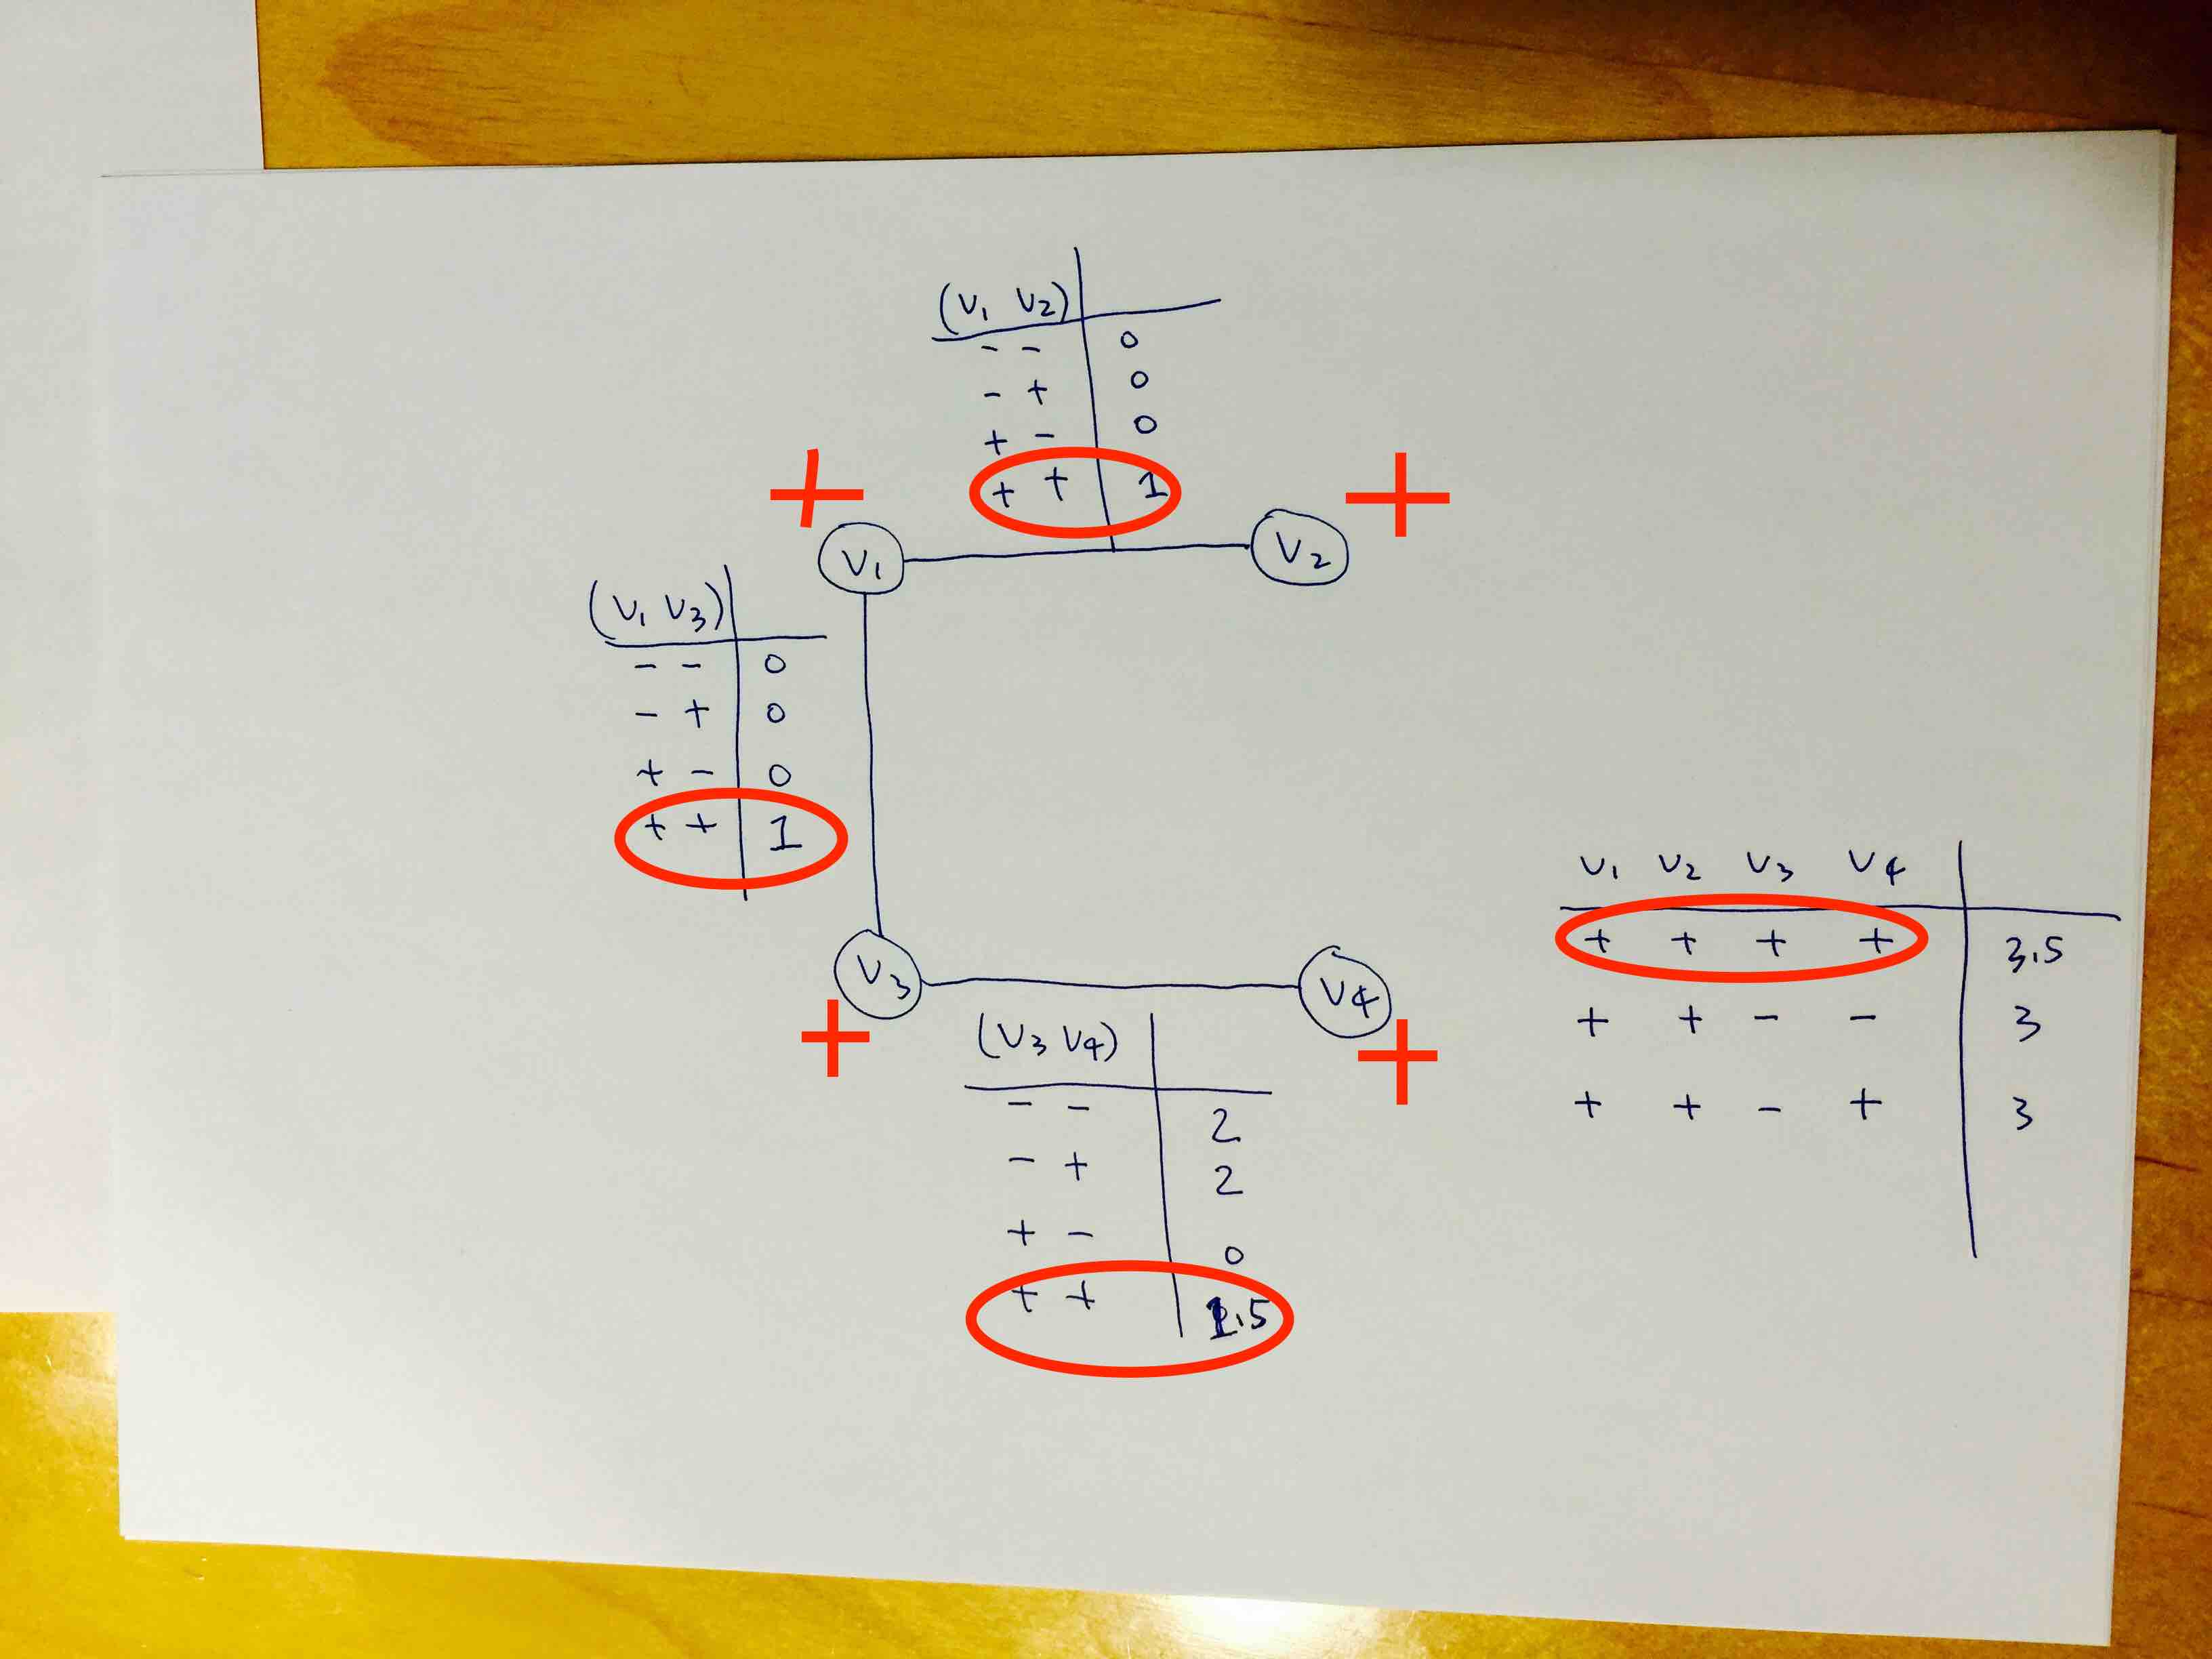 (V1 V2)
- - 0
- + 0
+ - 0
+ + 1
+ +
V1 V2
(V1 V3)
- - 0
- + 0
+ - 0
+ + 1
V3 V4
+ +
(V3 V4)
- - 2
- + 2
+ - 0
+ + 1.5
V1 V2 V3 V4
+ + + + 3.5
+ + - - 3
+ + - + 3